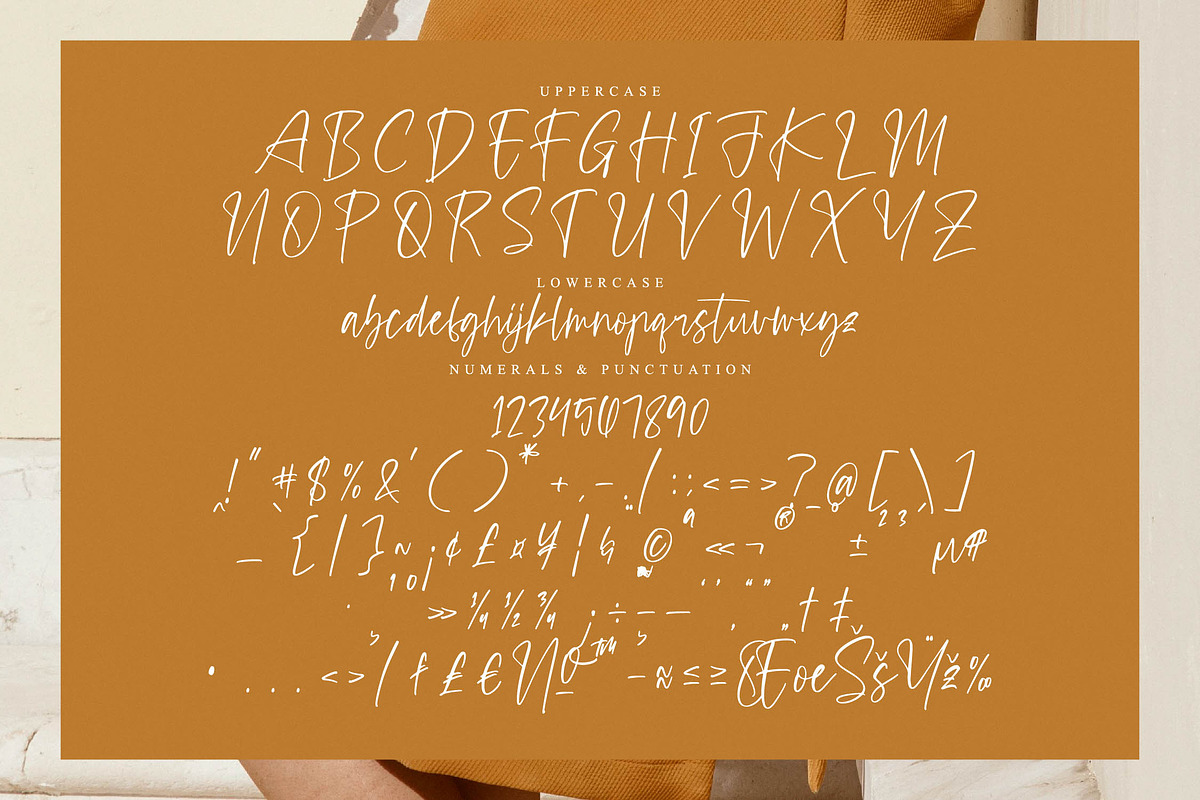 UPPERCASE
ABCDEFGHIJKLM
NOPQRSTUVWXYZ
LOWERCASE
abcdefghijklmnopqrstuvwxyz
NUMERALS & PUNCTUATION
1234567890
!"#$%&'()*+,-./:;<=>?@[\]
^_`{|}~¡¢£¤¥¦§¨©ª«¬®¯°²³´µ¶
·¸¹º»¼½¾¿÷–—‘’‚“”„†‡
•...‹›⁄ƒ₤€№™−≈≤≥ŒœŠšŸž‰